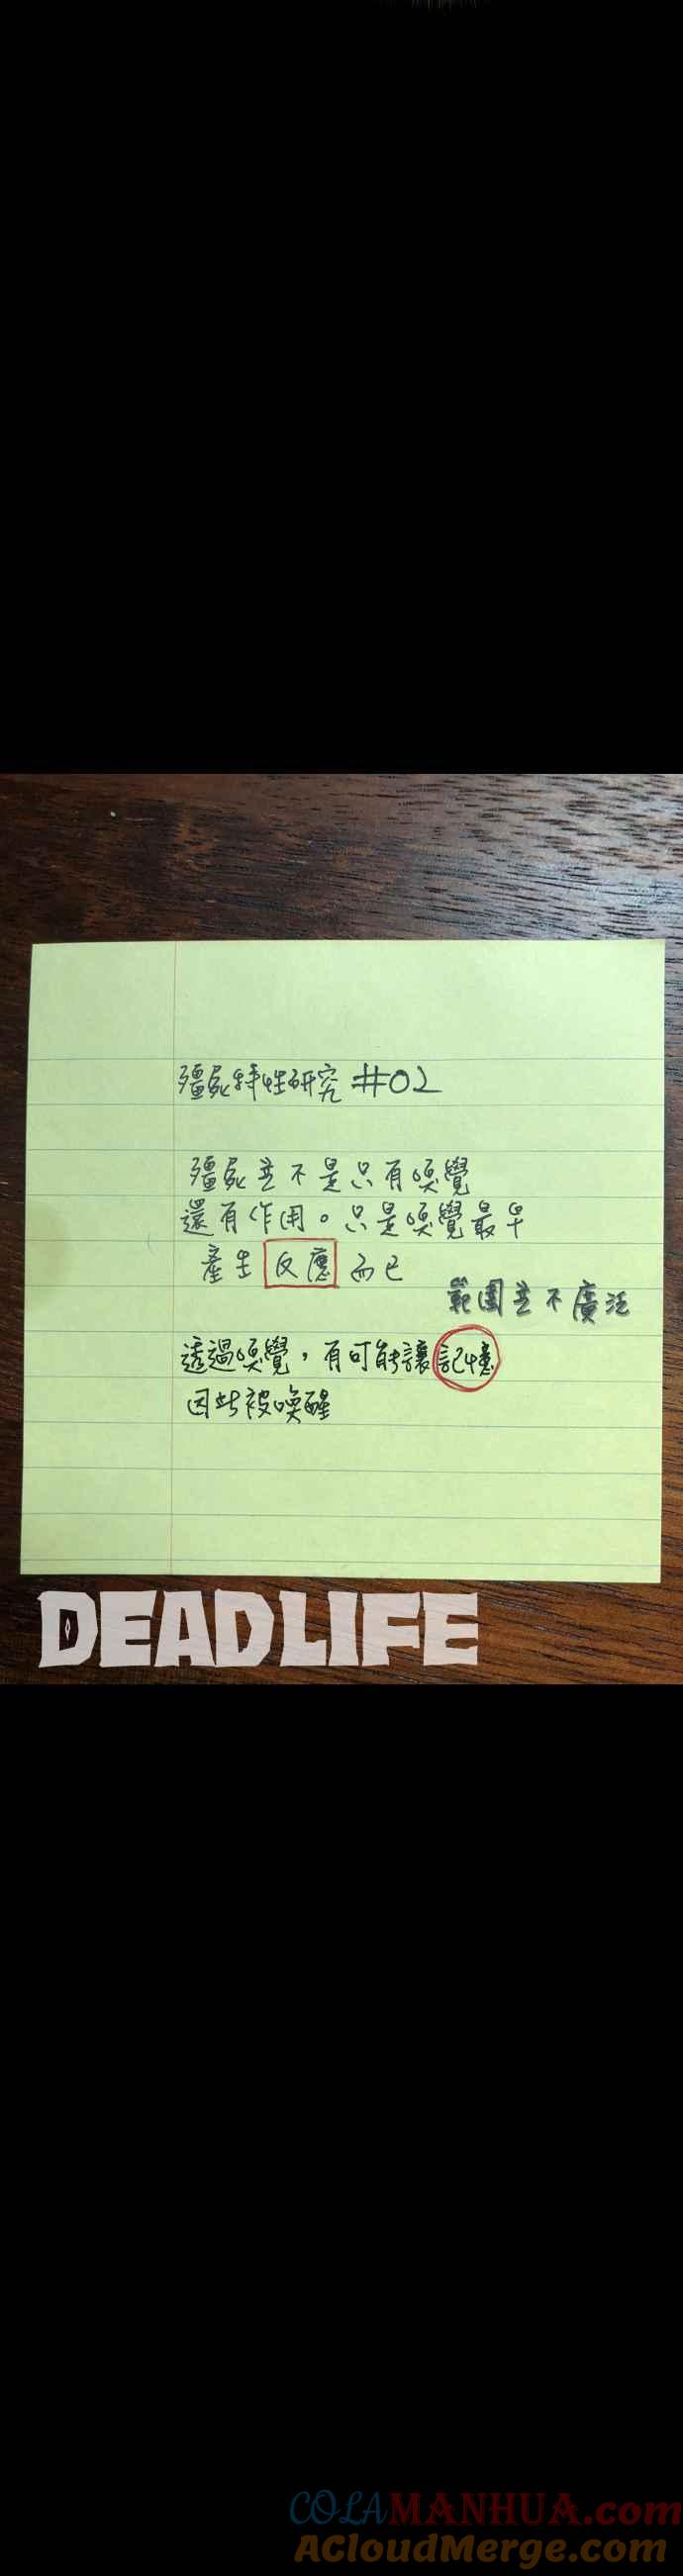 殭屍特性研究 #02
殭屍並不是只有嗅覺
還有作用。只是嗅覺最早
產生反應而已
範圍並不廣泛
透過嗅覺，有可能讓記憶
因此被喚醒
DEADLIFE
COLAMANHUA.com
ACloudMerge.com